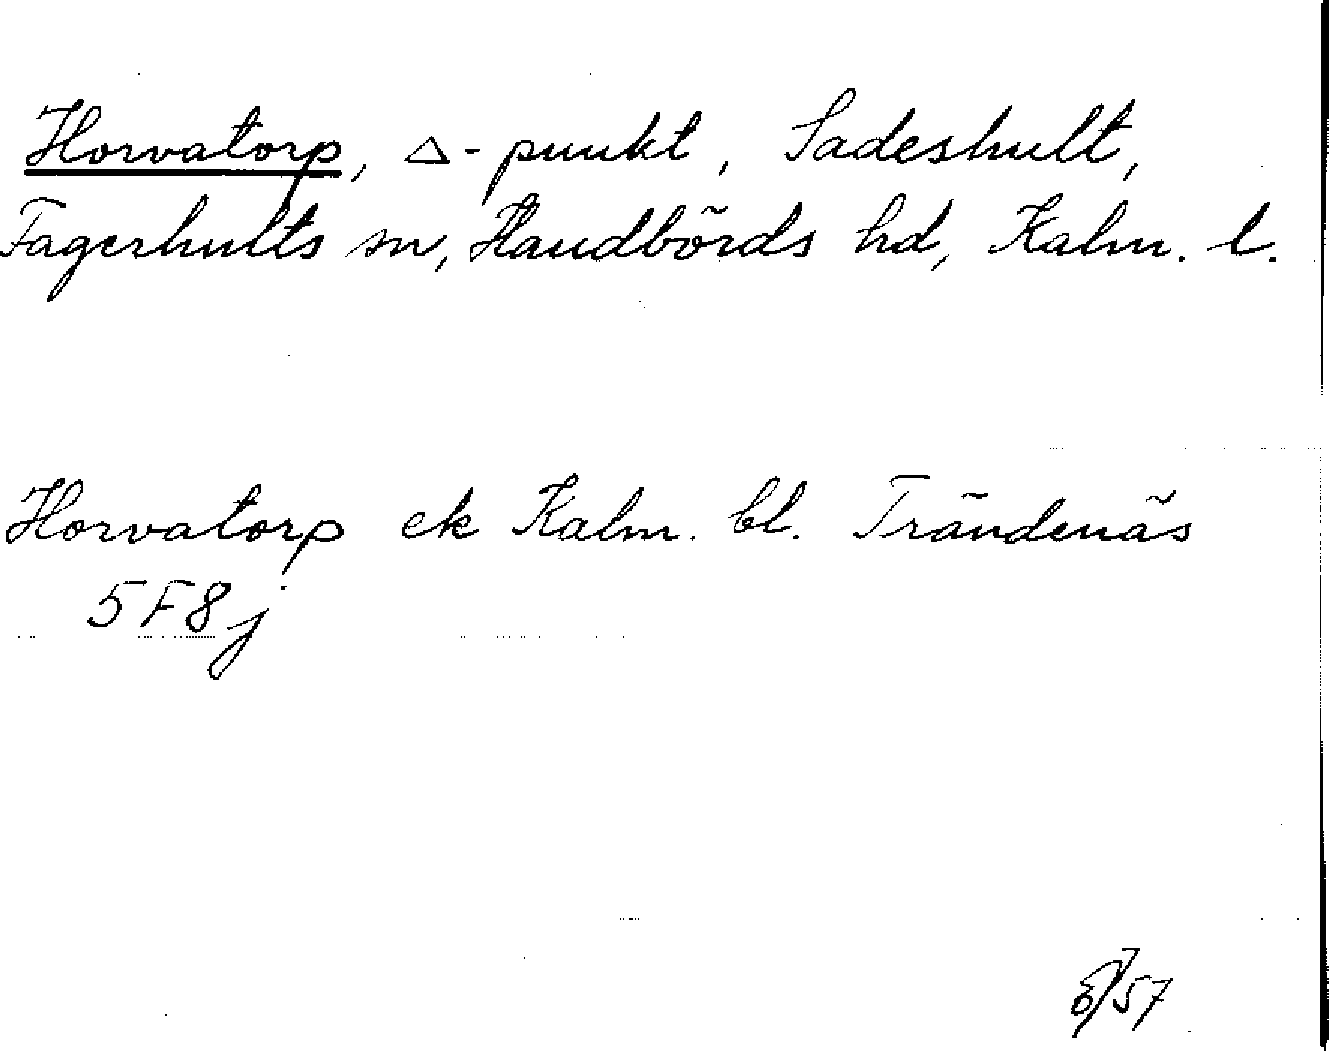 Horvatorp, △-punkt, Sadeshult,
Fagerhults sn, Handbörds hd, Kalm. l.
Horvatorp ek Kalm. bl. Trändenäs
5F8j
57